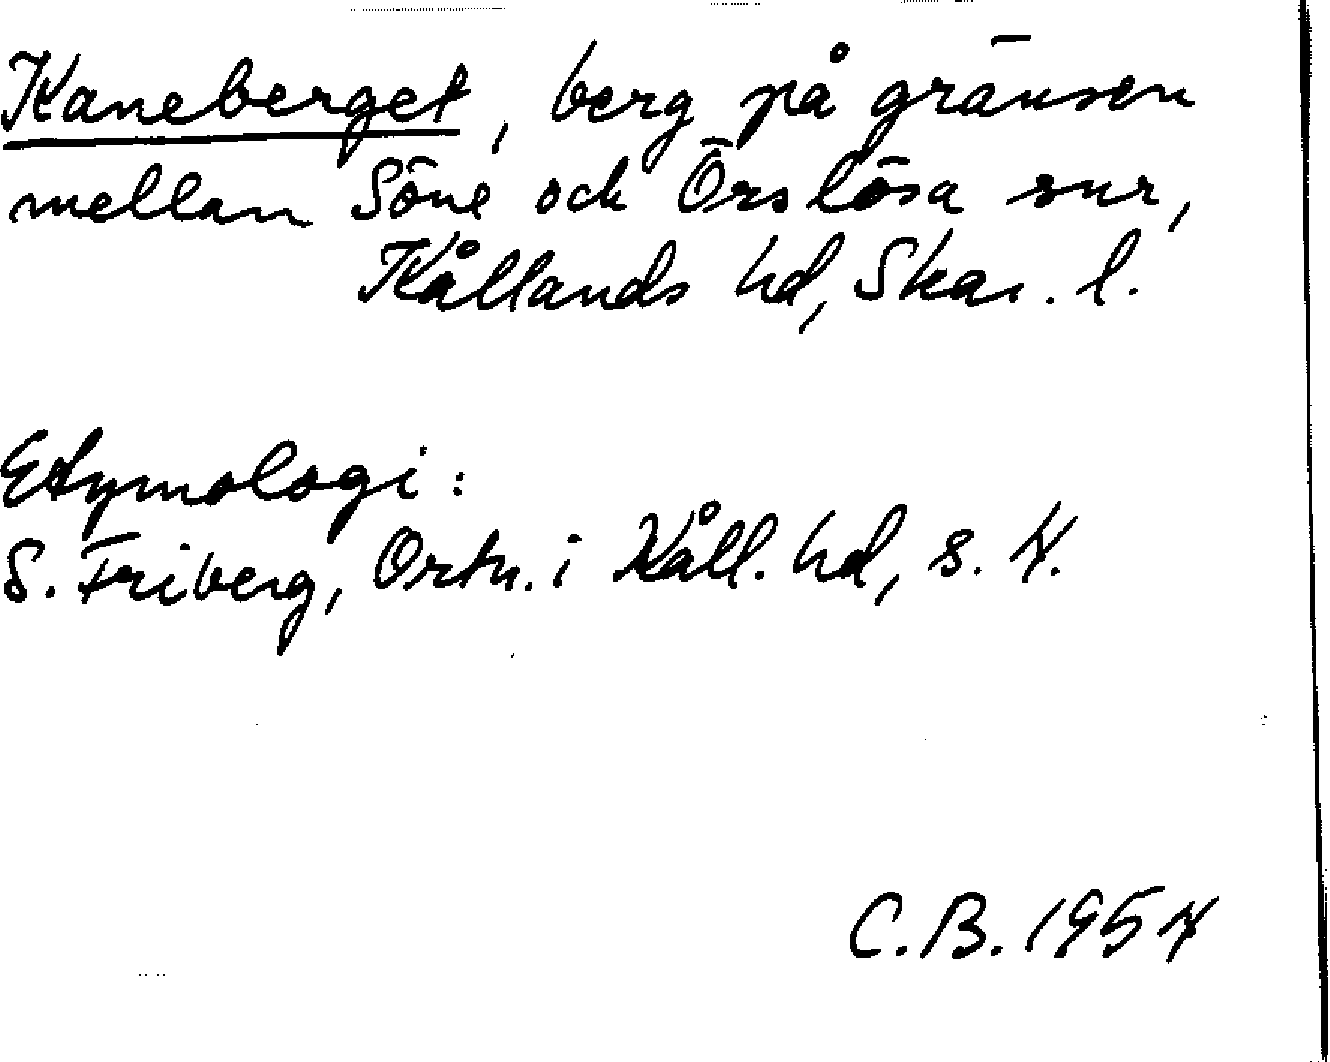 Kaneberget, berg på gränsen
mellan Söne och Örslösa snr,
Kållands hd, Skar. l.
Etymologi:
S. Friberg, Ortn. i Kåll. hd, s. 4.
C.B. 1954